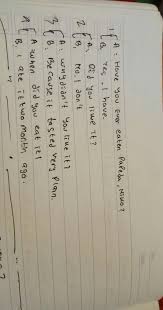 1 { A: Have you ever eaten Papeda, Niko?
B: Yes, I have.
2 { A: Did you like it?
B: No. I don't
3 { A: Why didn't you like it?
B: Because it tasted very plain.
4 { A: When did you eat it?
B: I ate it two month ago.